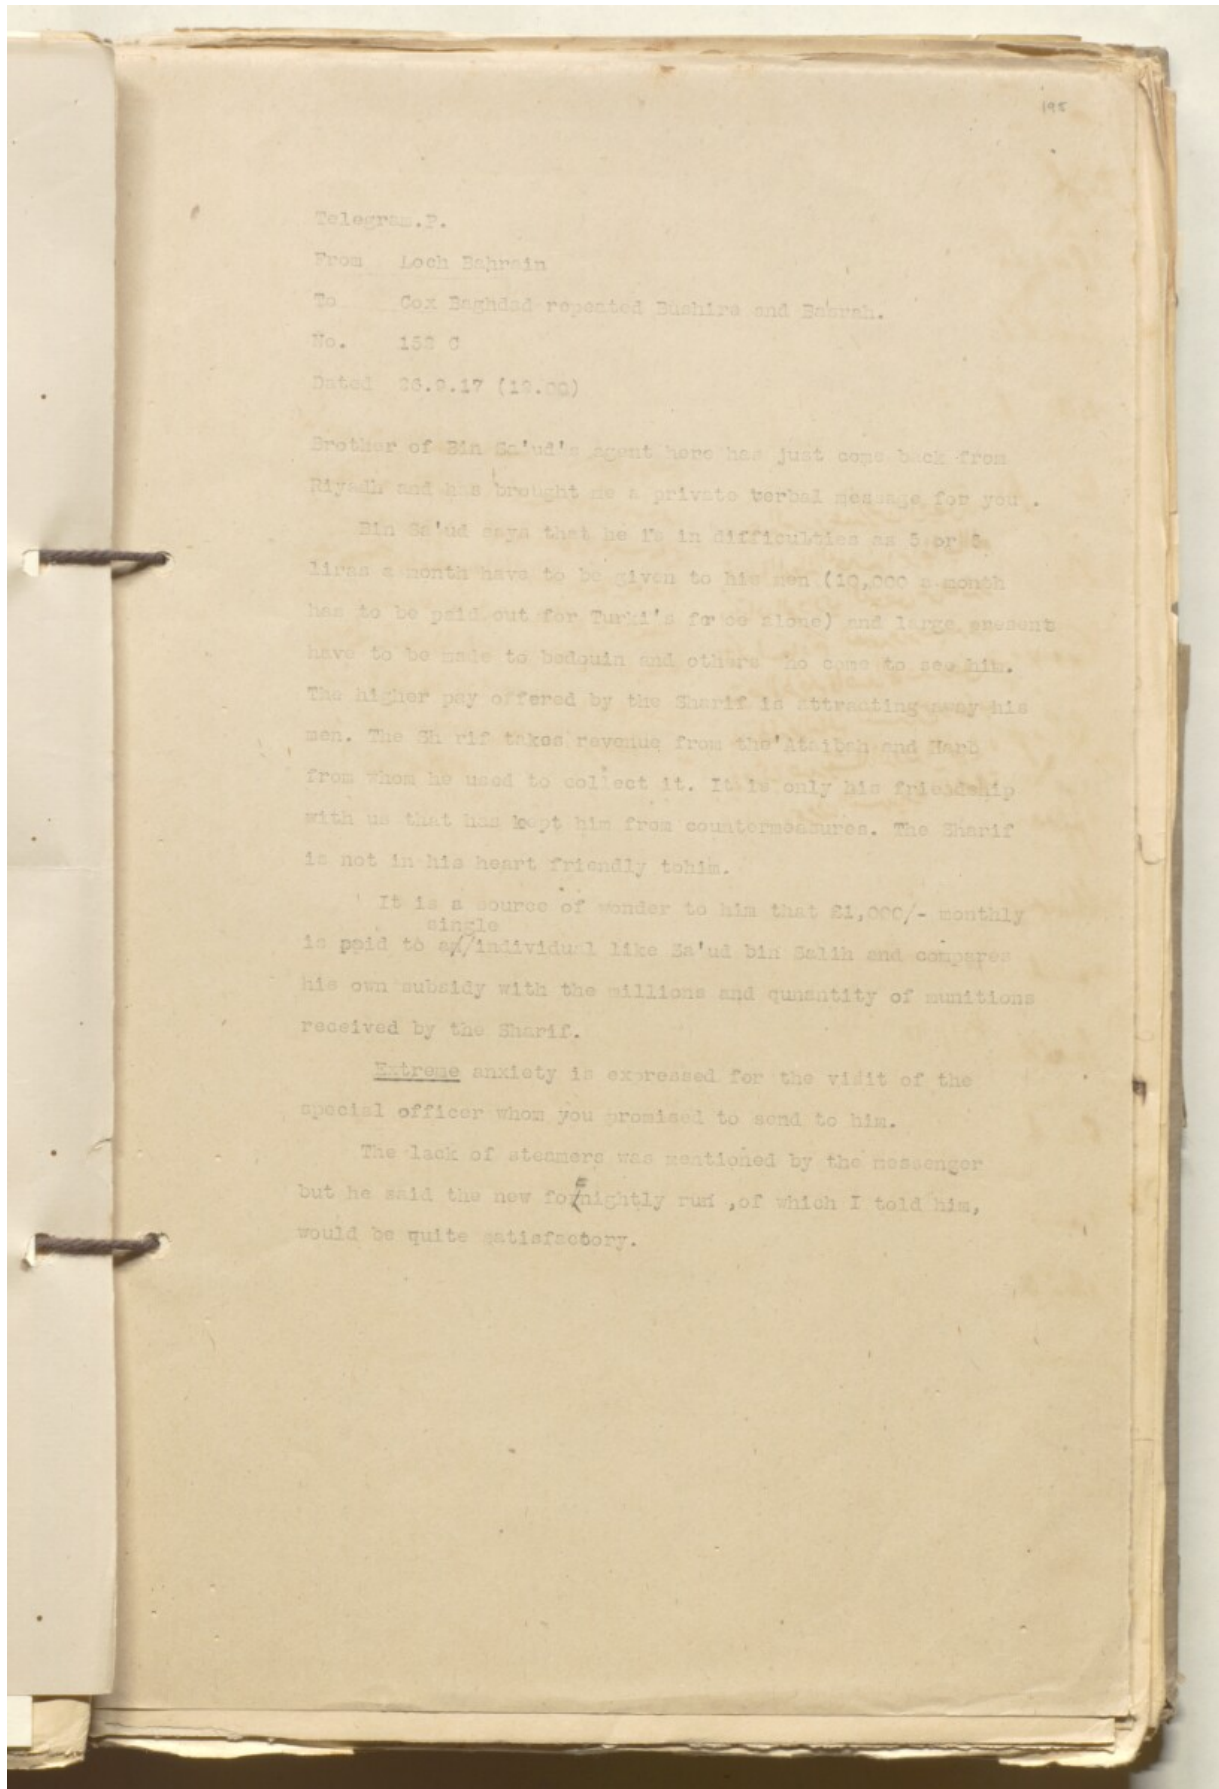 195
Telegram.P.
From Loch Bahrain
To Cox Baghdad repeated Bushire and Basrah.
No. 152 C
Dated 26.9.17 (12.00)
Brother of Bin Sa'ud's agent here has just come back from
Riyadh and has brought me a private verbal message for you .
Bin Sa'ud says that he is in difficulties as 5 or
liras a month have to be given to his men (10,000 a month
has to be paid out for Turki's force alone) and large present
have to be made to bedouin and others ho come to see him.
The higher pay offered by the Sharif is attracting away his
men. The Sh rif takes revenue from the'Ataibah and Harb
from whom he used to collect it. It is only his friendship
with us that has kept him from countermeasures. The Sharif
is not in his heart friendly tohim.
It is a source of wonder to him that £1,000/- monthly
single
is paid to an/individual like Sa'ud bin Salih and compares
his own subsidy with the millions and qunantity of munitions
received by the Sharif.
Extreme anxiety is expressed for the visit of the
special officer whom you promised to send to him.
The lack of steamers was mentioned by the messenger
but he said the new fortnightly run ,of which I told him,
would be quite satisfactory.